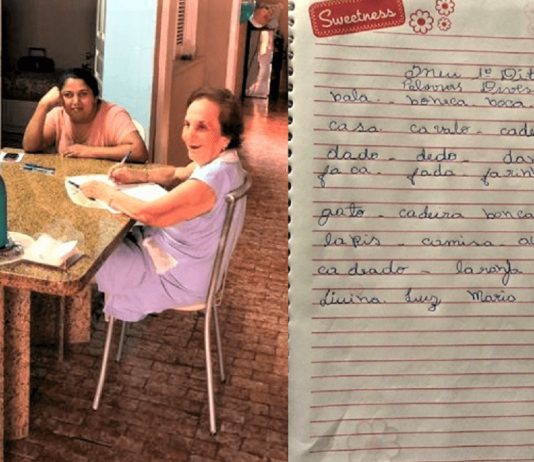 Sweetness
Meu 1º Dit
Palavras
bala - boneca boca
casa cavalo - cade
dado - dedo - da
faca. fada - farinh
gato - cadeira boneca
lapis - camisa - a
cadeado - laranja
Luiz Maria